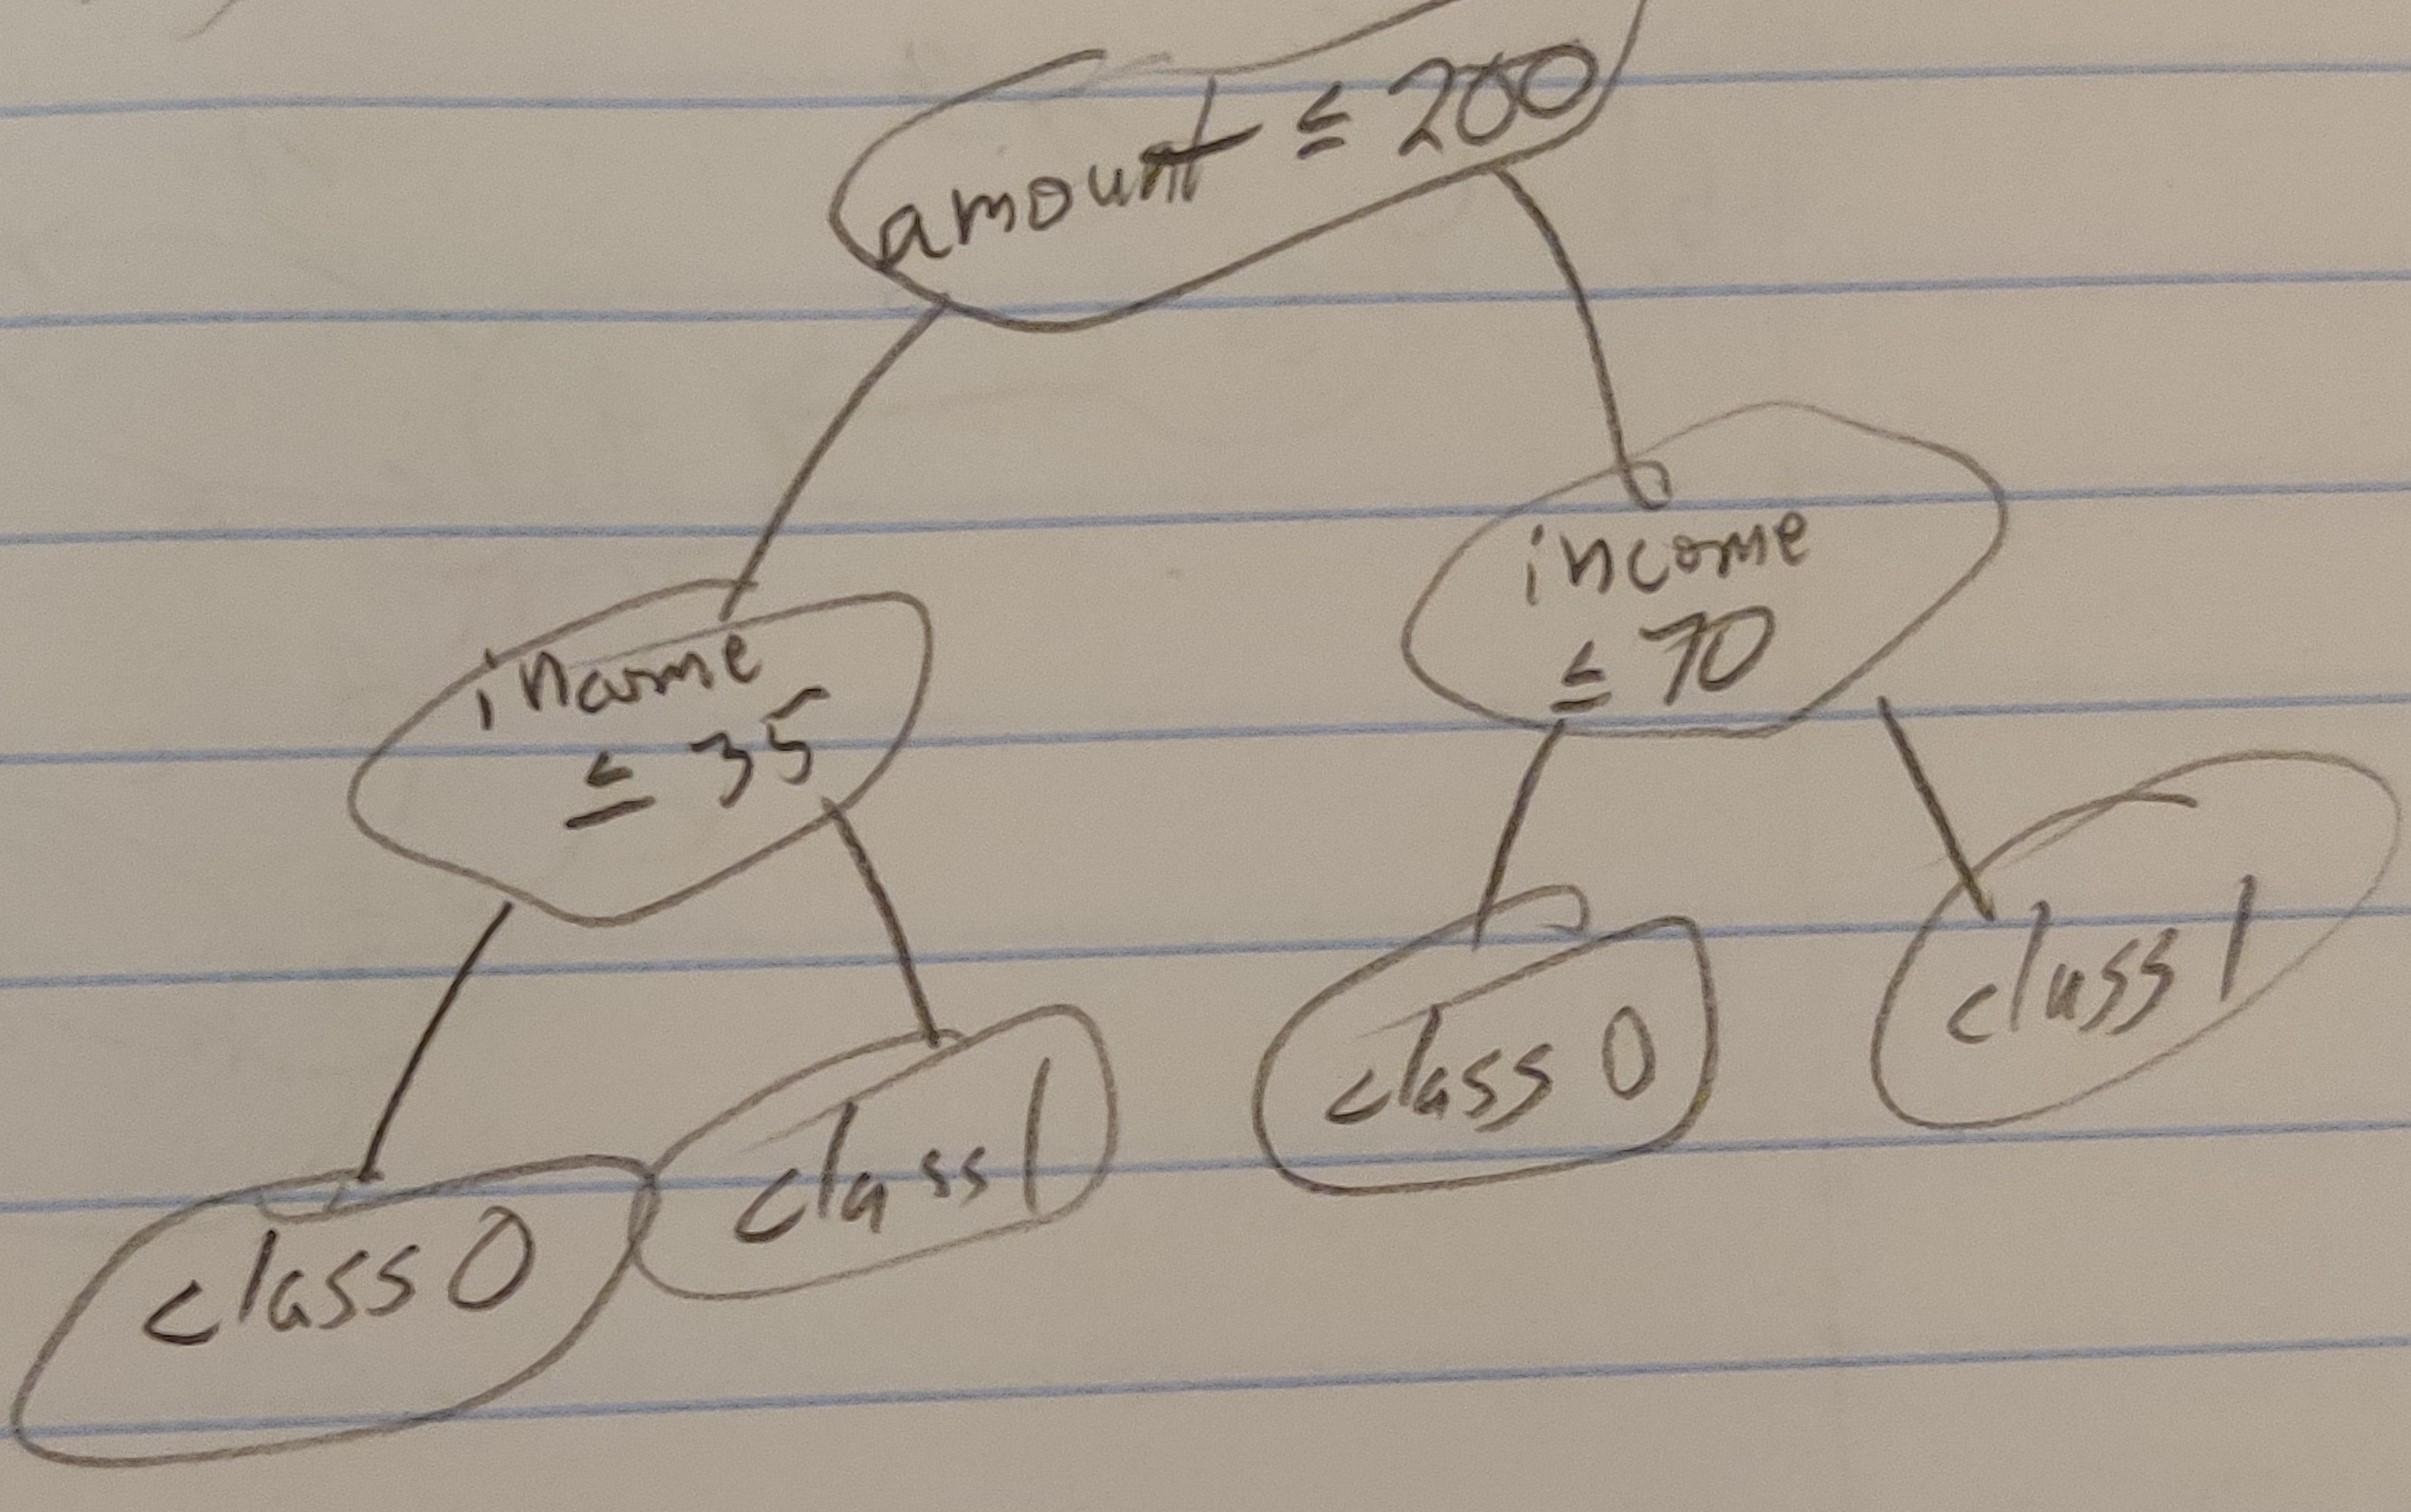 amount ≤ 200
income
≤ 70
income
≤ 35
class 1
class 0
class 1
class 0